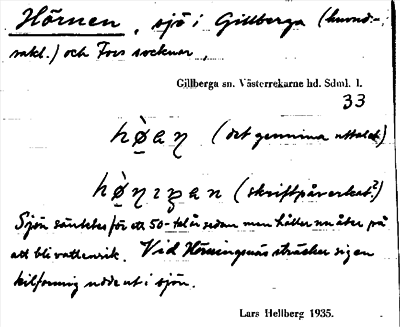 Hörnen, sjö i Gillberga (huvud-
sakl.) och Fors socknar,
Gillberga sn. Västerrekarne hd. Sdml. 1.
33
(det genuina uttalet)
(skriftpåverkat?)
Sjön sänktes för ett 50-tal år sedan men håller nu åter på
att bli vattenrik. Vid Hörningsnäs sträcker sig en
kilformig udde ut i sjön.
Lars Hellberg 1935.